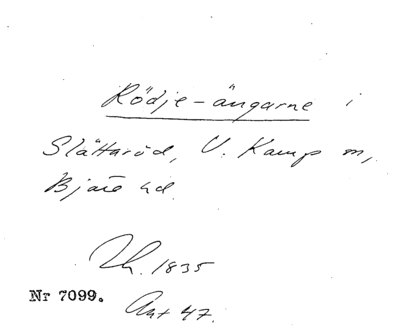 Rödje-ängarne i
Slättaröd, V. Karup sn,
Bjäre hd.
Th. 1835
Nr 7099.
Ant 47.